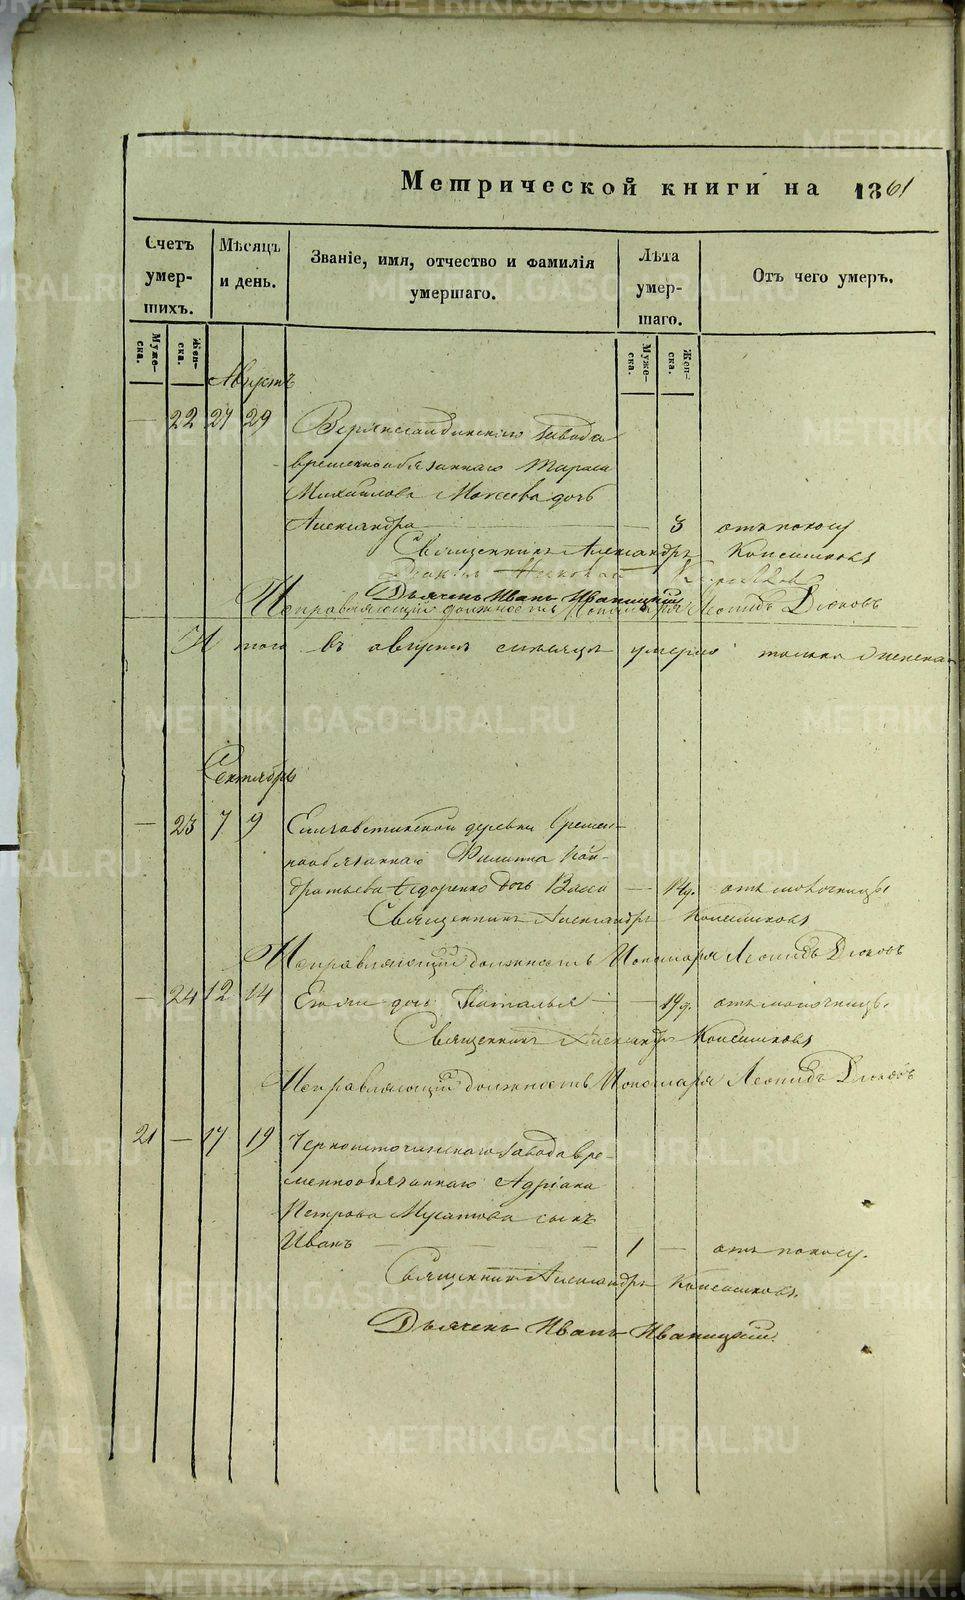 Метрической книги на 1861
Счетъ умер-шихъ.
Мѣсяцъ и день.
Званіе, имя, отчество и фамилія умершаго.
Лѣта умер-шаго.
Отъ чего умеръ.
Муже-ска.
Жен-ска.
Муже-ска.
Жен-ска.
Августъ
— 22 27 29
завода
временнообязаннаго Тараса
Михайлова Моисеева дочь
Александра — 3 отъ поносу
Священникъ Александръ
Дьяконъ
Дьячекъ Иванъ Иваницкій
Исправляющій должность Пономаря Леонидъ
Итого въ августѣ месяцѣ умерло только женска
Сентябрь
— 23 7 9 Елизаветинской деревни времен-
нообязаннаго Филиппа Кон-
дратьева Сидоренко дочь Васса — отъ молочницы
Священникъ Александръ
Исправляющій должность Пономаря Леонидъ
— 24 12 14 Его же дочь Наталья — отъ молочницы.
Священникъ Александръ
Исправляющій должность Пономаря Леонидъ
21 — 17 19 Черноисточинскаго завода вре-
меннообязаннаго Адріана
Петрова Мусатова сынъ
Иванъ — 1 — отъ поносу.
Священникъ Александръ
Дьячекъ Иванъ Иваницкій.
METRIKI.GASO-URAL.RU